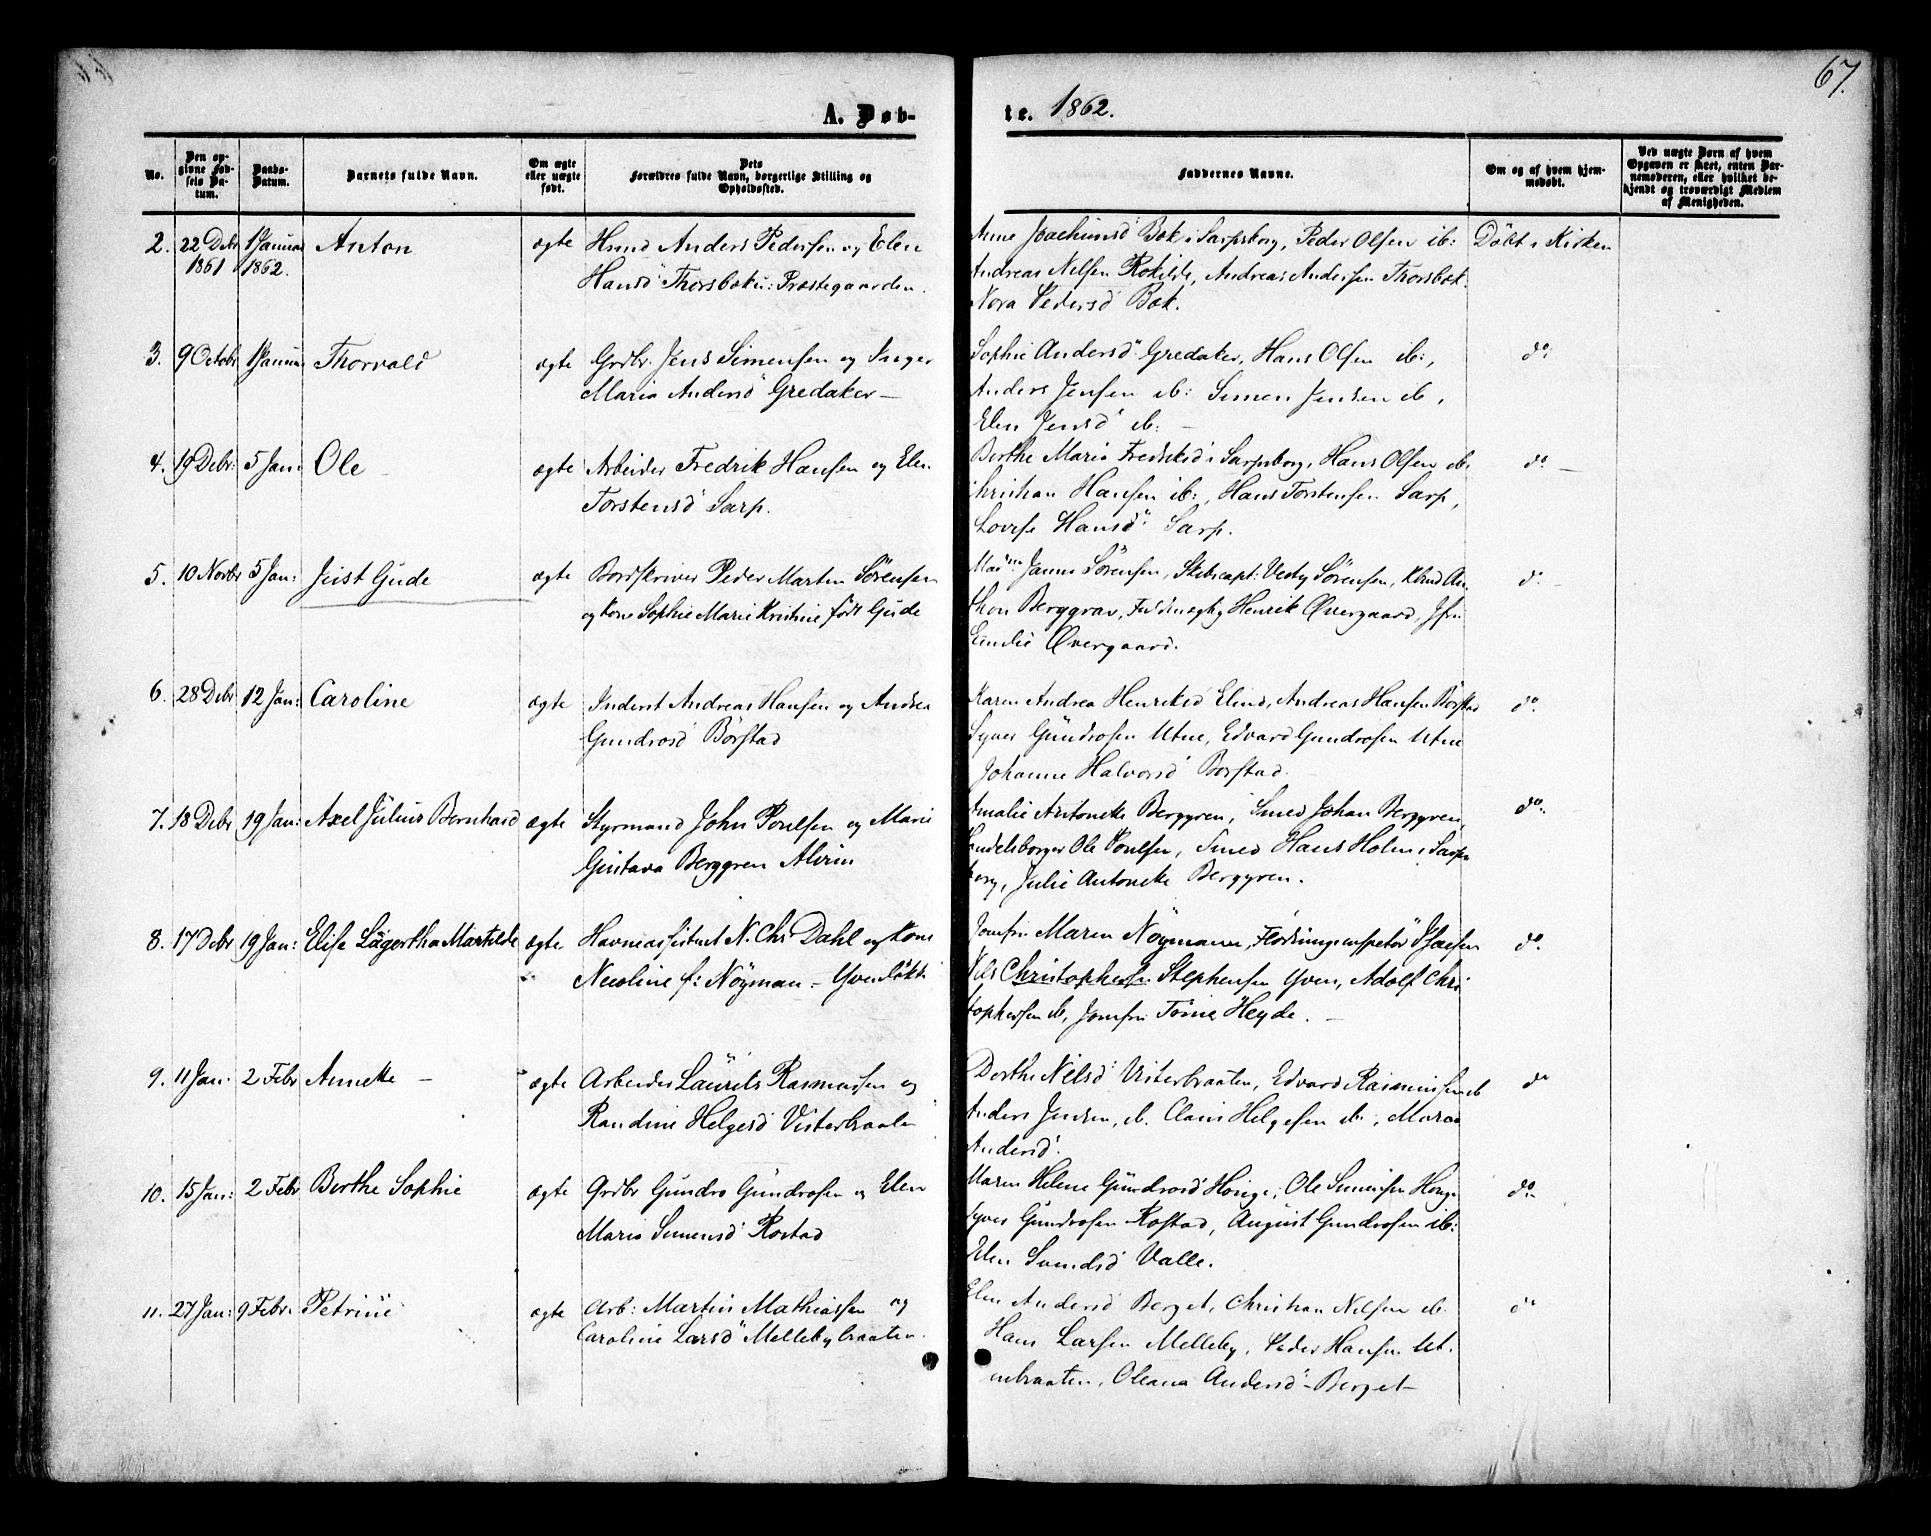 67.
A. Døb-
te. 1862.
No.
Den op-
givne Fød-
sels Da-
tum.
Daabs-
Datum.
Barnets fulde Navn.
Om ægte
eller uægte
født.
Dets
Forældres fulde Navn, borgerlige Stilling og
Opholdssted.
Faddernes Navne.
Om og af hvem hjem-
medøbt.
Ved uægte Børn af hvem
Opgaven er skeet, enten Bar-
nemoderen, eller hvilket be-
kjendt og troværdigt Medlem
af Menigheden.
2. 22 Debr 1 Januar Anton ægte Huusmd Anders Pedersen og Elen
1861 1862.
Hansd Thorsbæk u: Prestegaarden.
Anne Joachimsd Bøk i Sarpsborg, Peder Olsen ib: Døbt i Kirken
Andreas Nelsen Rokilde, Andreas Andersen Thorsbæk.
Nora Pedersd Bøk.
3. 9 Octobr 1 Januar Thorvald ægte Grdbr. Jens Simensen og Inger
Maria Andersd Gredaker —
Sophie Andersd Gredaker, Hans Olsen ib:, do:
Anders Jensen ib: Simen Jensen ib,
Elen Jensd ib: —
4. 19 Debr: 5 Jan: Ole — ægte Arbeider Fredrik Hansen og Elen
Torstensd Sarp.
Berthe Maria Fredriksd i Sarpsborg, Hans Olsen ib. do —
Christian Hansen ib:, Hans Torstensen Sarp,
Lovise Hansd Sarp.
5. 10 Novbr 5 Jan: Just Gude ægte Bordskriver Peder Martin Sörensen
og Kone Sophie Marie Kristine født Gude
Madm Janna Sörensen, Skibscapt: Vesty Sörensen, Khmd An- do —
thon Berggrav, Henrik Øvergaard, Jfru
Emilie Øvergaard.
6. 28 Debr 12 Jan: Caroline ægte Inderst Andreas Hansen og Andrea
Gundrosd Börstad
Karen Andrea Henriksd Elind, Andreas Hansen Börstad do.
Syver Gundrosen Utne, Edvard Gundrosen Utne
Johanne Halvorsd Borstad.
7. 18 Debr 19 Jan: Axel Julius Bernhard ægte Styrmand John Poulsen og Marie
Gustava Berggren Alvim
Amalie Antonette Berggren, Smed Johan Berggren, do:
Handelsborger Ole Poulsen, Smed Hans Holm i Sarps-
borg, Julie Antonette Berggren.
8. 17 Debr 19 Jan: Elise Lagertha Mathilde ægte Havneassistent N. Chr Dahl og Kone
Nicoline f: Nöyman — Yven
Jomfru Maren Nöymann, Flödningsinspetör Isaksen do.
Nils Christophersen Stephensen Yven, Adolf Chri
stophersen ib, Jomfru Tomine Heyde. —
9. 11 Jan: 2 Febr Annette — ægte Arbeider Laurits Rasmussen og
Randine Helgesd Visterbraaten
Dorthe Nilsd Visterbraaten, Edvard Rasmussen ib do
Anders Jensen, ib. Claus Helgesen ib:, Maren
Andersd.
10. 15 Jan: 2 Febr Berthe Sophie ægte Grdbr Gundro Gundrosen og Elen
Maria Simensd Rostad
Maren Helene Gundrosd Honge, Ole Simensen Honge do.
Syver Gundrosen Rostad, August Gundrosen ib:
Elen Svendsd Valle.
11. 27 Jan: 9 Febr. Petrine ægte Arb: Martin Mathiassen og
Caroline Larsd Mellebybraaten.
Elen Andersd Berget, Christian Nilsen ib. do
Hans Larsen Melleby, Peder Hansen Ut-
nebraaten, Oleana Andersd Berget —